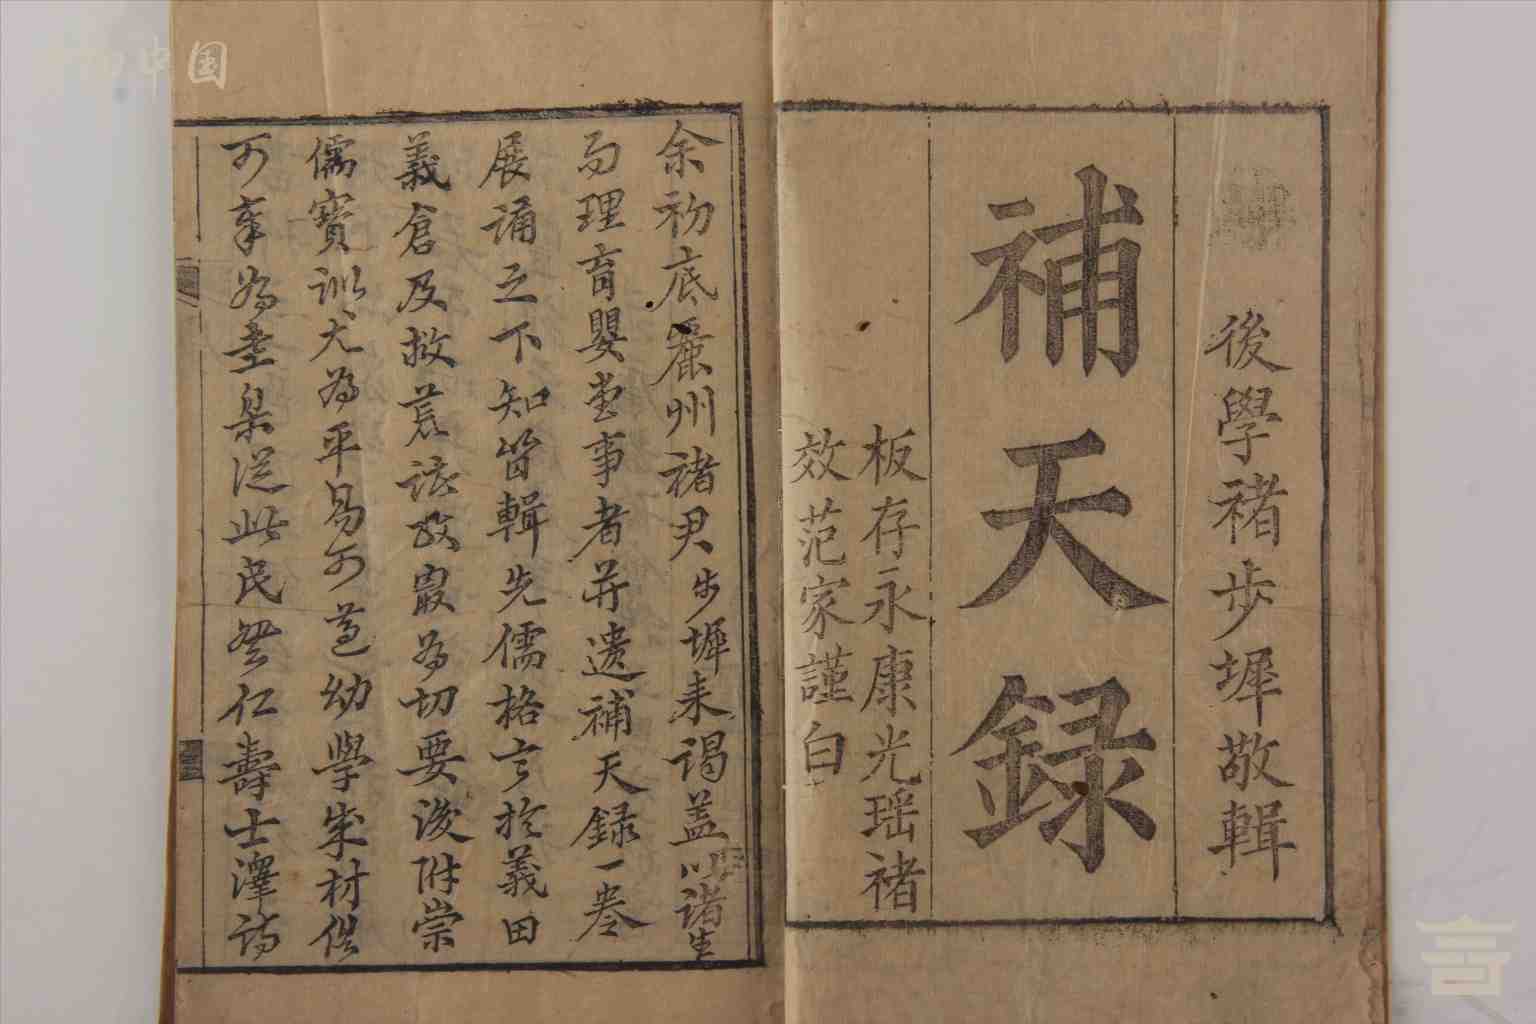 後學褚步墀敬輯
補天録
板存永康光瑶褚
效范家謹白
余初底麗州褚尹步墀来謁盖以諸生
而理育嬰堂事者并遗補天録一卷
展誦之下知皆輯先儒格言於義田
義倉及救荒諸政最為切要後附崇
儒寳訓尤為平易可遵幼學成材供
可奉為圭臬從此民登仁壽士澤詩
中国